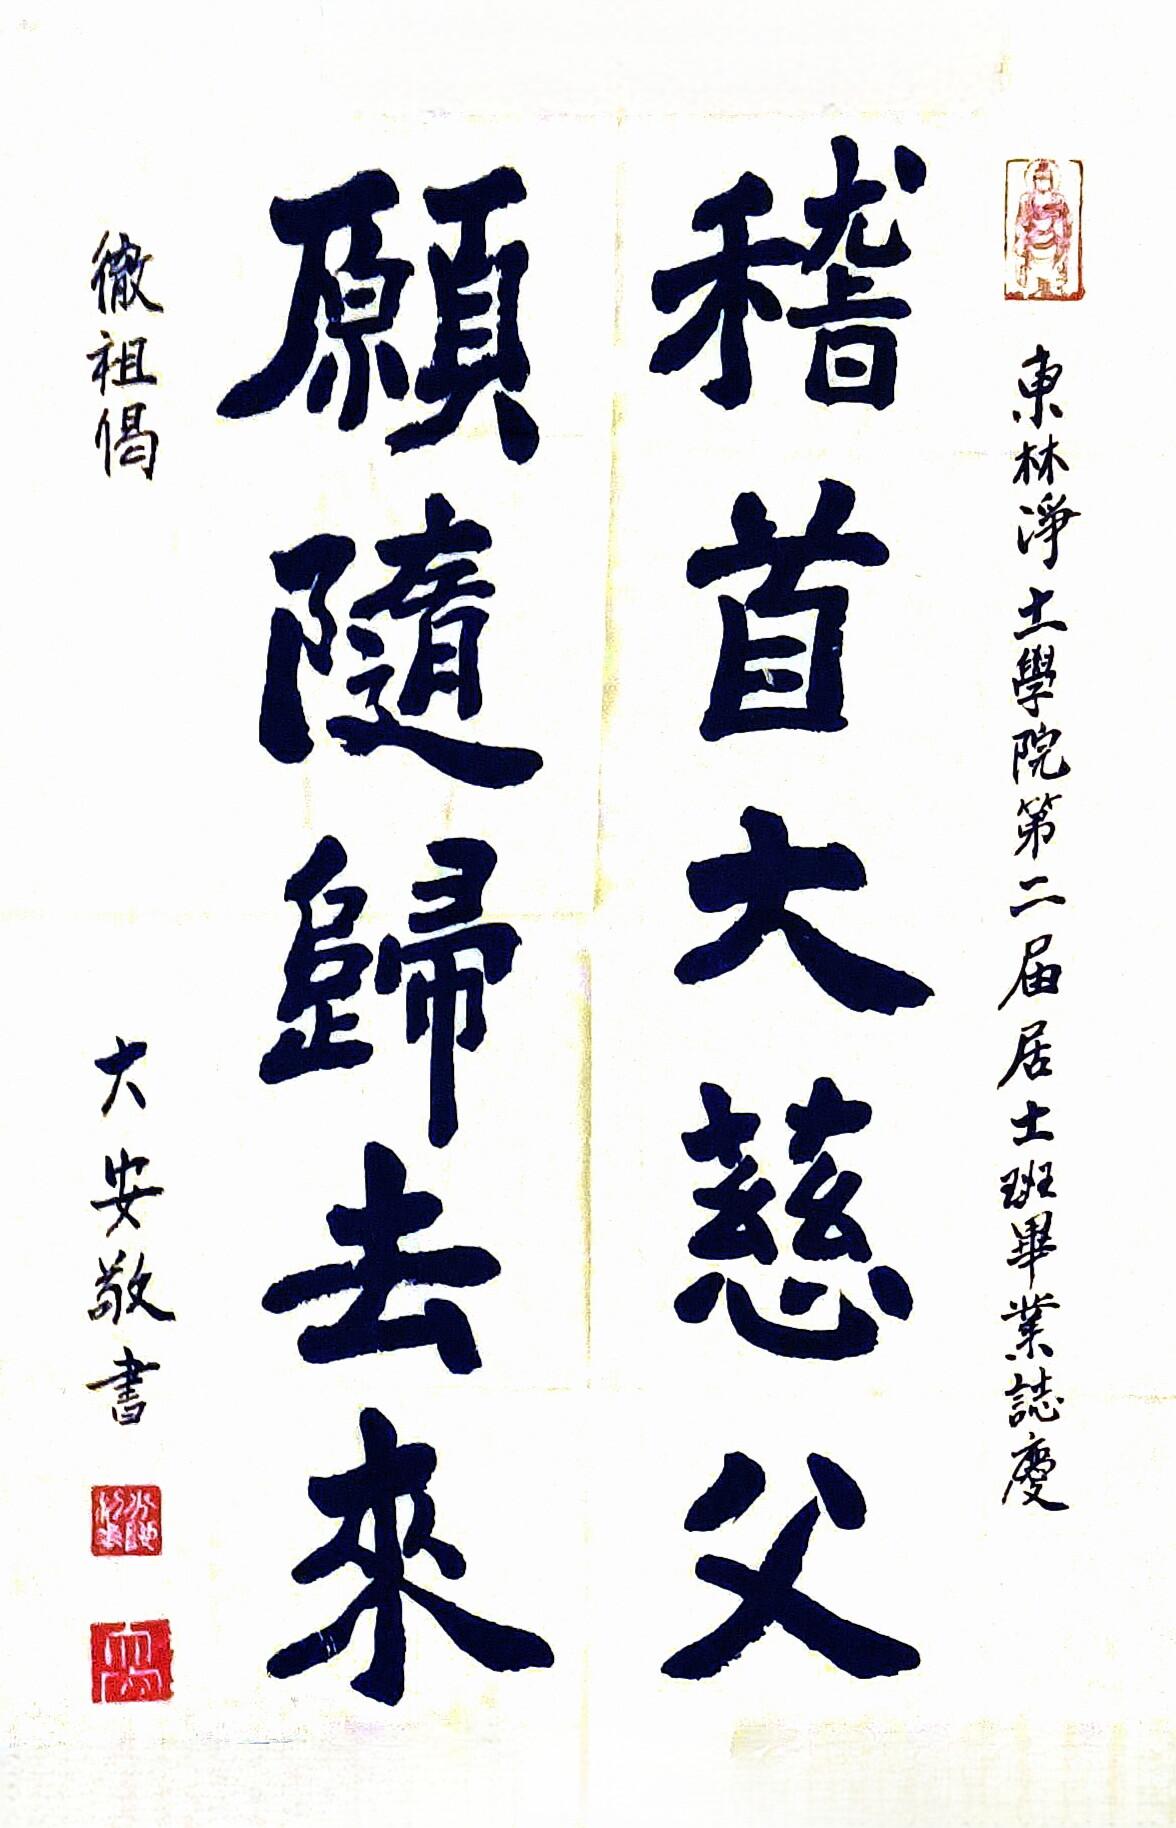 東林淨土學院第二届居士班畢業誌慶
稽首大慈父
願隨歸去來
徹祖偈
大安敬書